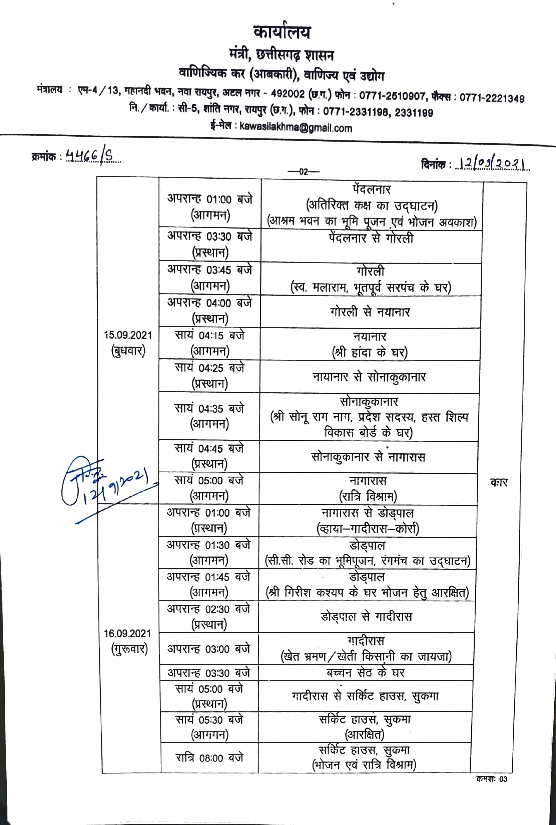 कार्यालय
मंत्री, छत्तीसगढ़ शासन
वाणिज्यिक कर (आबकारी), वाणिज्य एवं उद्योग
मंत्रालय : एम-4/13, महानदी भवन, नवा रायपुर, अटल नगर - 492002 (छ.ग.) फोन : 0771-2510907, फैक्स : 0771-2221349
नि./कार्या. : सी-5, शांति नगर, रायपुर (छ.ग.), फोन : 0771-2331198, 2331199
ई-मेल : kawasilakhma@gmail.com
क्रमांक : 4466/S
दिनांक : 12/09/2021
—02—
15.09.2021
(बुधवार)
अपरान्ह 01:00 बजे
(आगमन)
पेंदलनार
(अतिरिक्त कक्ष का उद्घाटन)
(आश्रम भवन का भूमि पूजन एवं भोजन अवकाश)
अपरान्ह 03:30 बजे
(प्रस्थान)
पेंदलनार से गोरली
अपरान्ह 03:45 बजे
(आगमन)
गोरली
(स्व. मलाराम, भूतपूर्व सरपंच के घर)
अपरान्ह 04:00 बजे
(प्रस्थान)
गोरली से नयानार
सायं 04:15 बजे
(आगमन)
नयानार
(श्री हांदा के घर)
सायं 04:25 बजे
(प्रस्थान)
नायानार से सोनाकुकानार
सायं 04:35 बजे
(आगमन)
सोनाकुकानार
(श्री सोनू राग नाग, प्रदेश सदस्य, हस्त शिल्प
विकास बोर्ड के घर)
सायं 04:45 बजे
(प्रस्थान)
सोनाकुकानार से नागारास
सायं 05:00 बजे
(आगमन)
नागारास
(रात्रि विश्राम)
कार
12/9/2021
16.09.2021
(गुरूवार)
अपरान्ह 01:00 बजे
(प्रस्थान)
नागारास से डोड़पाल
(व्हाया-गादीरास-कोर्रा)
अपरान्ह 01:30 बजे
(आगमन)
डोड़पाल
(सी.सी. रोड का भूमिपूजन, रंगमंच का उद्घाटन)
अपरान्ह 01:45 बजे
(आगमन)
डोड़पाल
(श्री गिरीश कश्यप के घर भोजन हेतु आरक्षित)
अपरान्ह 02:30 बजे
(प्रस्थान)
डोड़पाल से गादीरास
अपरान्ह 03:00 बजे
गादीरास
(खेत भ्रमण/खेती किसानी का जायजा)
अपरान्ह 03:30 बजे
बच्चन सेठ के घर
सायं 05:00 बजे
(प्रस्थान)
गादीरास से सर्किट हाउस, सुकमा
सायं 05:30 बजे
(आगगन)
सर्किट हाउस, सुकमा
(आरक्षित)
रात्रि 08:00 बजे
सर्किट हाउस, सुकमा
(भोजन एवं रात्रि विश्राम)
क्रमशः 03